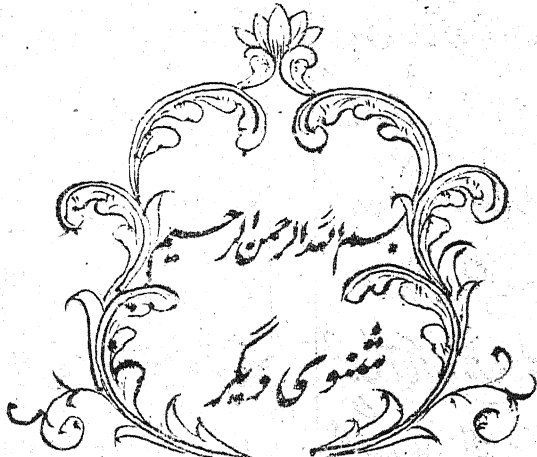 بسم الله الرحمن الرحیم
مثنوی دیگر